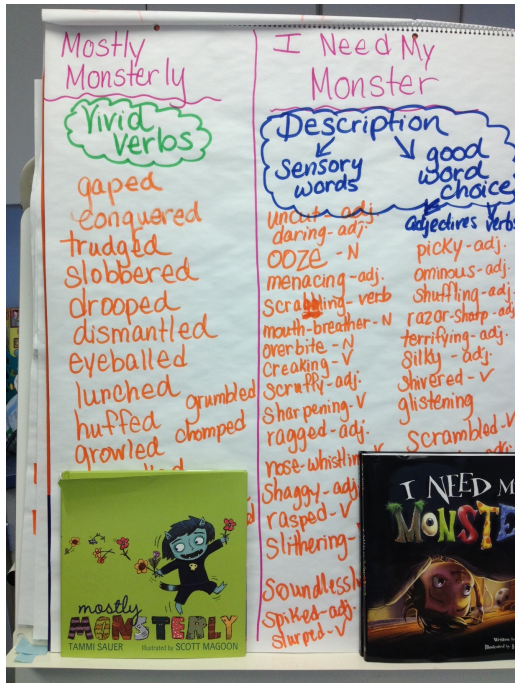 Mostly
Monsterly
Vivid
verbs
gaped
conquered
trudged
slobbered
drooped
dismantled
eyeballed
lunched
huffed
growled
grumbled
chomped
I Need My
Monster
Description
sensory
words
good
word
choice
adjectives verbs
uncut-adj.
daring-adj.
OOZE - N
menacing-adj.
scrabbling-verb
mouth-breather-N
overbite - N
Creaking - V
Scruffy-adj.
Sharpening-V
ragged-adj.
nose-whistling-V
Shaggy-adj
rasped-V
Slithering-
Soundlessly
Spikes-adj.
slurped-V
picky-adj.
ominous-adj.
Shuffling-adj.
razor-sharp-adj.
terrifying-adj.
Silky-adj.
shivered-V
glistening
Scrambled-V
mostly
MONSTERLY
TAMMI SAUER Illustrated by SCOTT MAGOON
I NEED M
MONSTE
Written by
Illustrated by